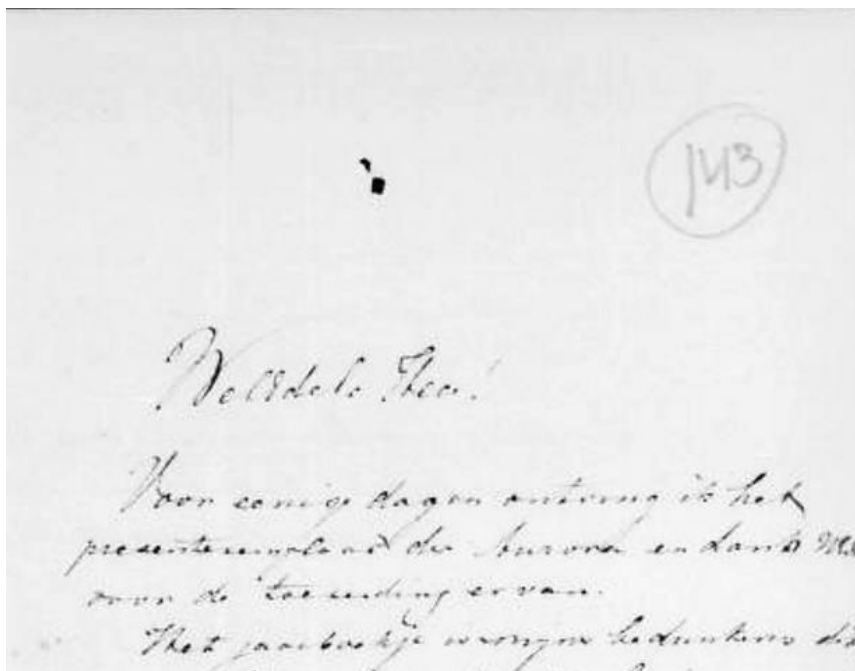 143
WelEdele Heer!
Voor eenige dagen ontving ik het
presentexemplaar der Aurora en dank
voor de toezending ervan.
Het jaarboekje is mijns bedunkens